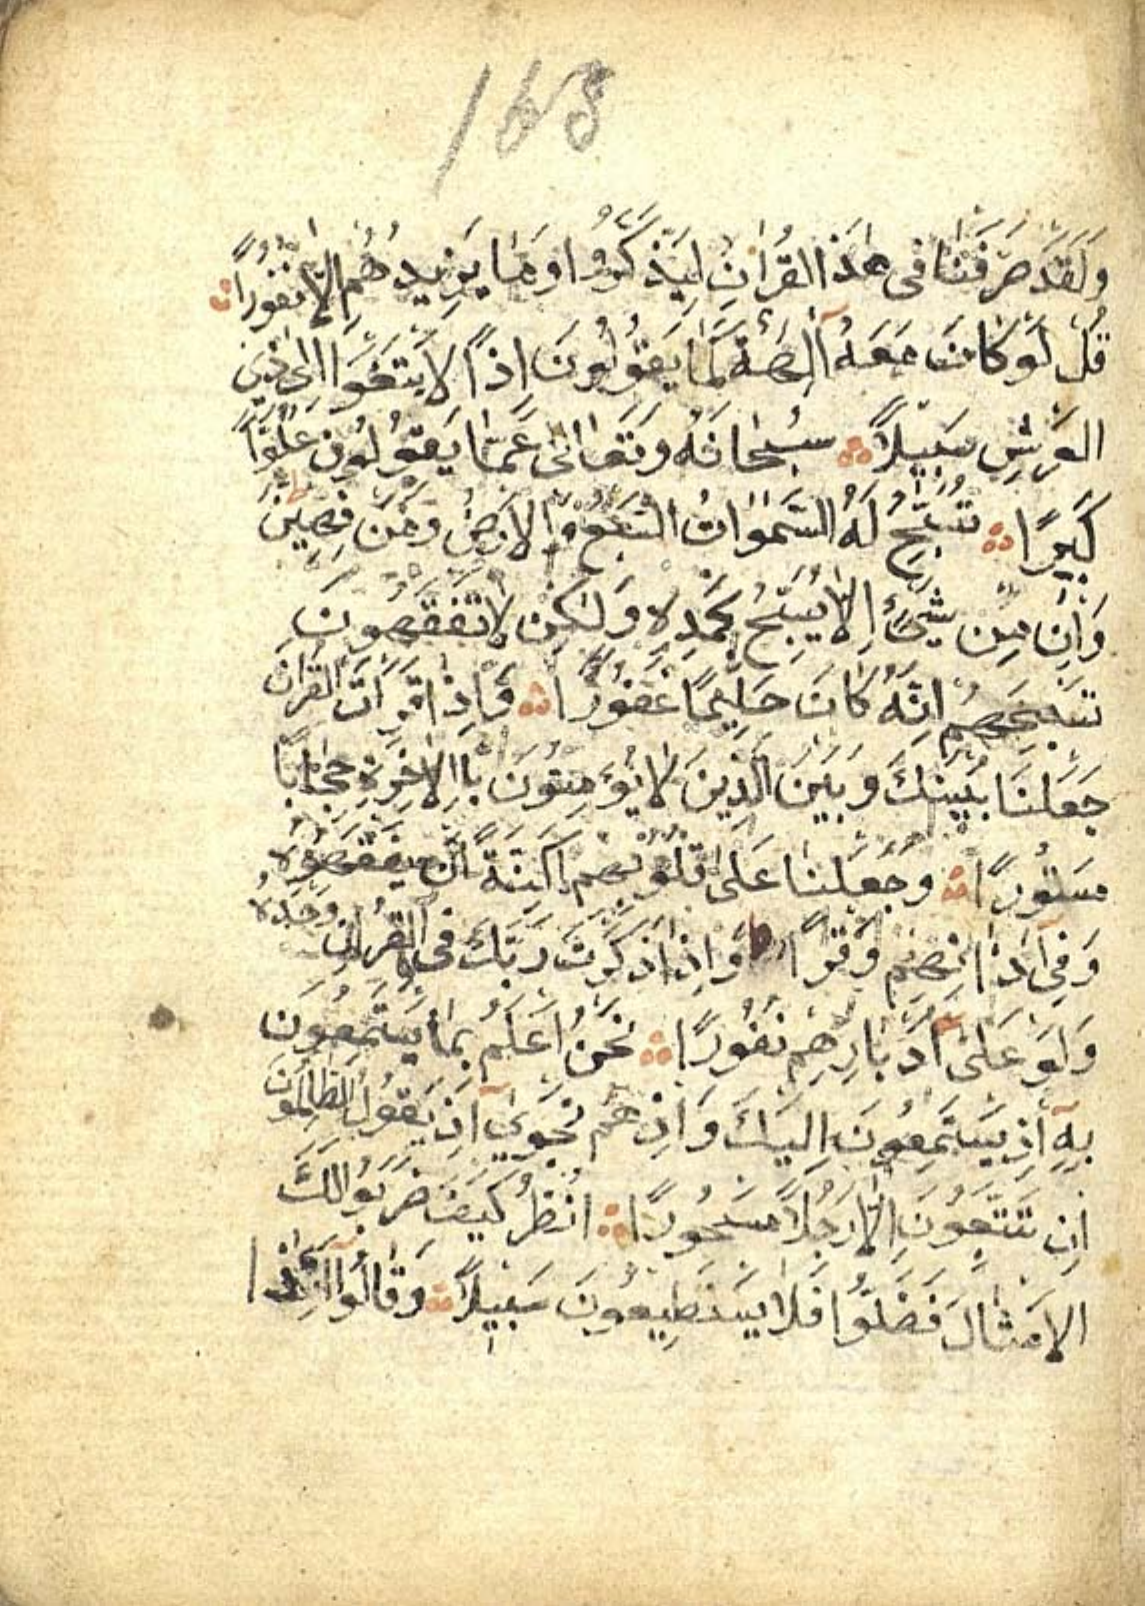 168
وَلَقَدْ صَرَّفْنَا فِى هٰذَا الْقُرْاٰنِ لِيَذَّكَّرُوا وَمَا يَزِيدُهُمْ اِلَّا نُفُورًا
قُلْ لَوْ كَانَ مَعَهُ اٰلِهَةٌ كَمَا يَقُولُونَ اِذًا لَابْتَغَوْا اِلٰى ذِى
الْعَرْشِ سَبِيلًا سُبْحَانَهُ وَتَعَالٰى عَمَّا يَقُولُونَ عُلُوًّا
كَبِيرًا تُسَبِّحُ لَهُ السَّمٰوَاتُ السَّبْعُ وَالْاَرْضُ وَمَنْ فِيهِنَّ
وَاِنْ مِنْ شَىْءٍ اِلَّا يُسَبِّحُ بِحَمْدِهِ وَلٰكِنْ لَا تَفْقَهُونَ
تَسْبِيحَهُمْ اِنَّهُ كَانَ حَلِيمًا غَفُورًا وَاِذَا قَرَأْتَ الْقُرْاٰنَ
جَعَلْنَا بَيْنَكَ وَبَيْنَ الَّذِينَ لَا يُؤْمِنُونَ بِالْاٰخِرَةِ حِجَابًا
مَسْتُورًا وَجَعَلْنَا عَلٰى قُلُوبِهِمْ اَكِنَّةً اَنْ يَفْقَهُوهُ
وَفِى اٰذَانِهِمْ وَقْرًا وَاِذَا ذَكَرْتَ رَبَّكَ فِى الْقُرْاٰنِ وَحْدَهُ
وَلَّوْا عَلٰى اَدْبَارِهِمْ نُفُورًا نَحْنُ اَعْلَمُ بِمَا يَسْتَمِعُونَ
بِهِ اِذْ يَسْتَمِعُونَ اِلَيْكَ وَاِذْ هُمْ نَجْوٰى اِذْ يَقُولُ الظَّالِمُونَ
اِنْ تَتَّبِعُونَ اِلَّا رَجُلًا مَسْحُورًا اُنْظُرْ كَيْفَ ضَرَبُوا لَكَ
الْاَمْثَالَ فَضَلُّوا فَلَا يَسْتَطِيعُونَ سَبِيلًا وَقَالُوا اَئِذَا